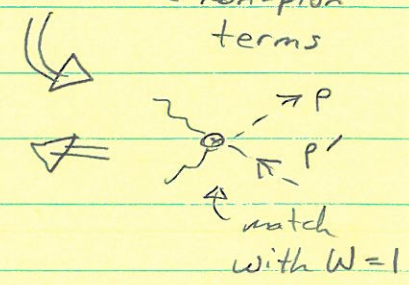 terms
p
p'
match
with W = 1